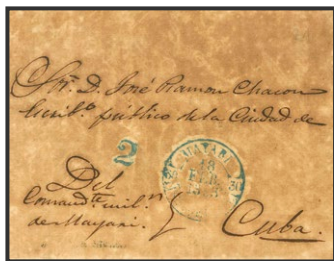 Sor. D. José Ramon Chacon
Escribo. público de la Ciudad de
2
MAYARI
18
Del
Comandte. milr.
de Mayari.
Cuba.